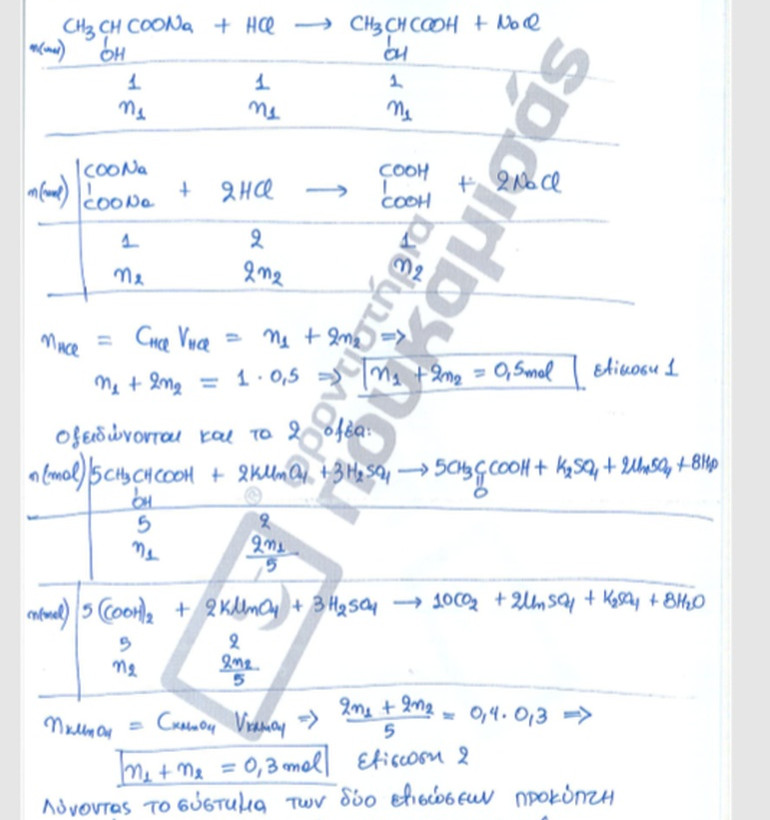 CH3CHCOONa + HCl → CH3CHCOOH + NaCl
n(mol) OH OH
1 1 1
n1 n1 n1
COONa COOH
n(mol) + 2HCl → + 2NaCl
COONa COOH
1 2 1
n2 2n2 n2
nHCl = CHCl VHCl = n1 + 2n2 =>
n1 + 2n2 = 1 · 0,5 => n1 + 2n2 = 0,5mol εξίσωση 1
Οξειδώνονται και τα 2 οξέα:
n(mol) 5CH3CHCOOH + 2KMnO4 + 3H2SO4 → 5CH3CCOOH + K2SO4 + 2MnSO4 + 8H2O
OH O
5 2
n1 2n1/5
n(mol) 5(COOH)2 + 2KMnO4 + 3H2SO4 → 10CO2 + 2MnSO4 + K2SO4 + 8H2O
5 2
n2 2n2/5
nKMnO4 = CKMnO4 VKMnO4 => 2n1 + 2n2/5 = 0,4 · 0,3 =>
n1 + n2 = 0,3 mol εξίσωση 2
Λύνοντας το σύστημα των δύο εξισώσεων προκύπτη
φροντιστήρια
πουκαμισάς
®